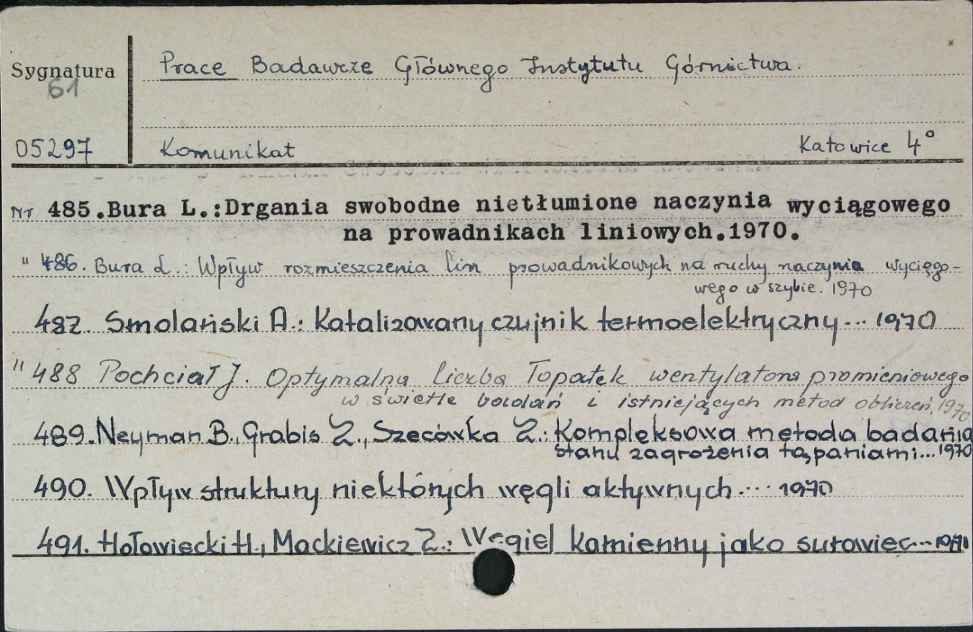 Sygnatura
61
Prace Badawcze Głównego Instytutu Górnictwa.
05297 Komunikat Katowice 4°
Nr 485.Bura L.:Drgania swobodne nietłumione naczynia wyciągowego
na prowadnikach liniowych.1970.
" 486. Bura L.: Wpływ rozmieszczenia lin prowadnikowych na ruchy naczynia wyciągo-
wego w szybie. 1970
487. Smolański A.: Katalizowany czujnik termoelektryczny... 1970
" 488 Pochciał J. Optymalna liczba łopatek wentylatora promieniowego
w świetle badań i istniejących metod obliczeń. 1970
489. Neyman B., Grabis Z., Szecówka Z.: Kompleksowa metoda badania
stanu zagrożenia tąpaniami... 1970
490. Wpływ struktury niektórych węgli aktywnych... 1970
491. Hołowiecki H., Mackiewicz Z.: Węgiel kamienny jako surowiec...